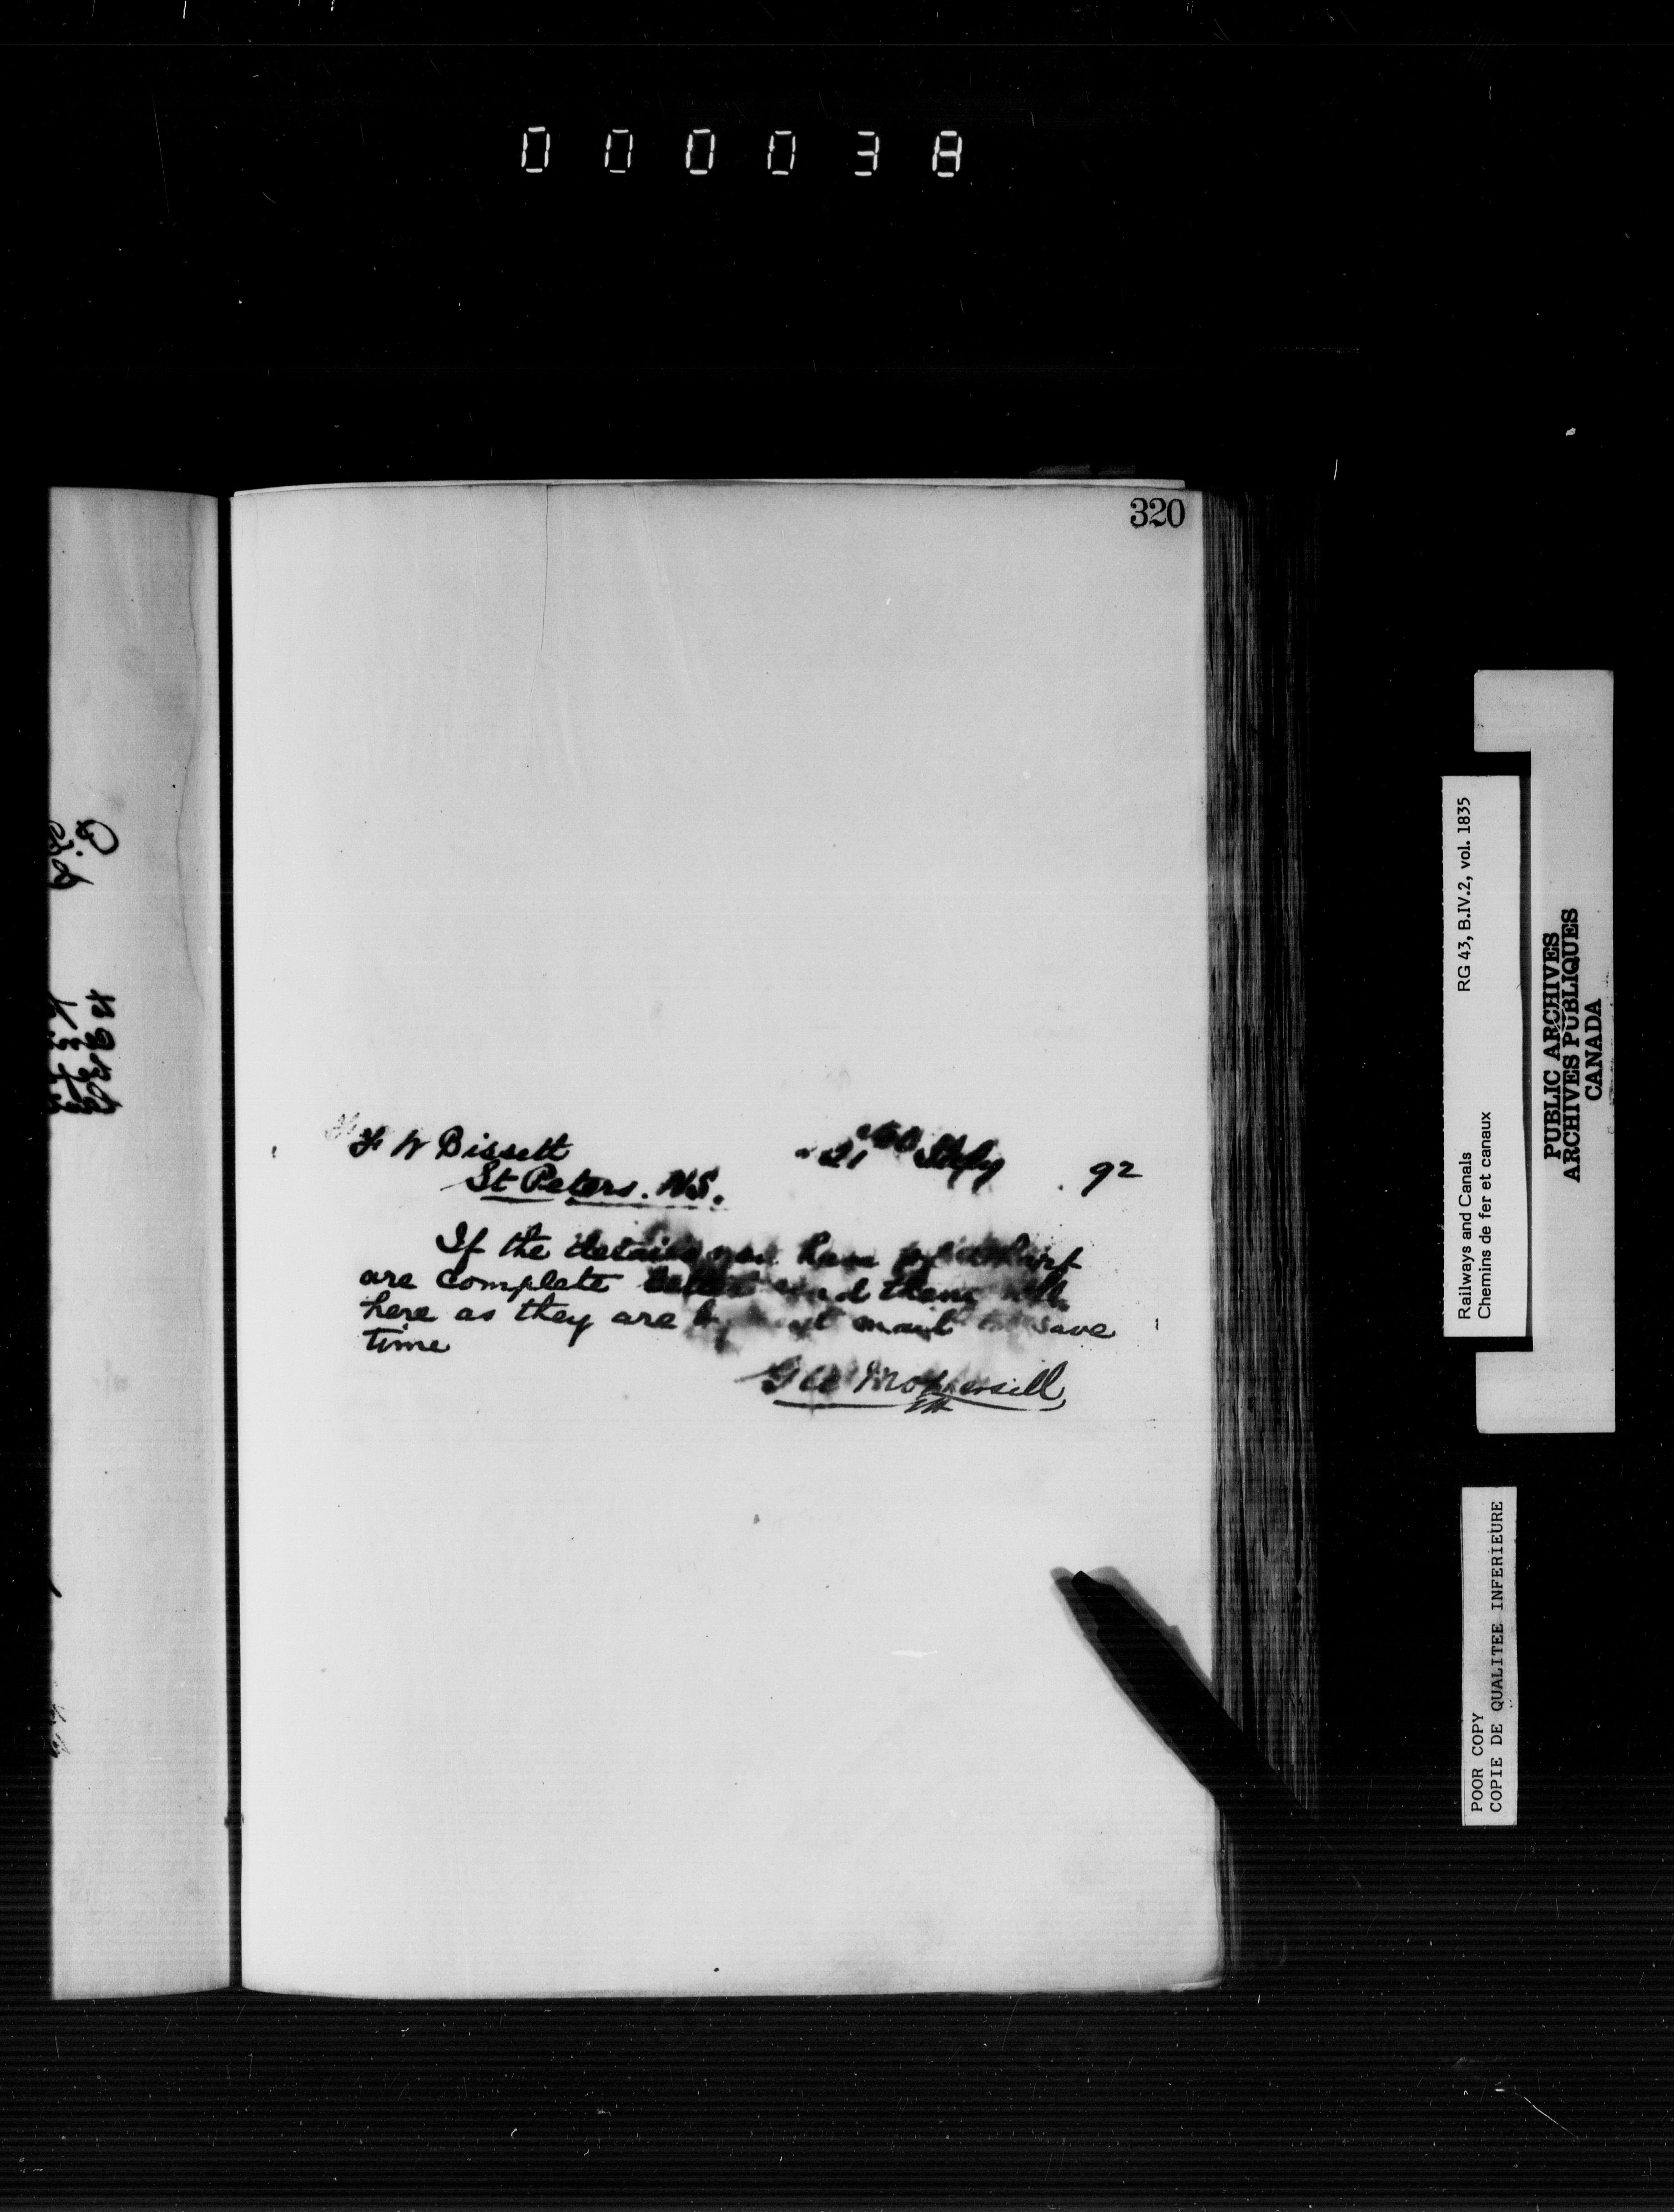 000038
320
F W Bissett
St Peters. N.S.
21 92
If the details you have of wharf
are complete better send them
here as they are by next mail to save
time
RG 43, B.IV.2, vol. 1835
Railways and Canals
Chemins de fer et canaux
PUBLIC ARCHIVES
ARCHIVES PUBLIQUES
CANADA
POOR COPY
COPIE DE QUALITEE INFERIEURE